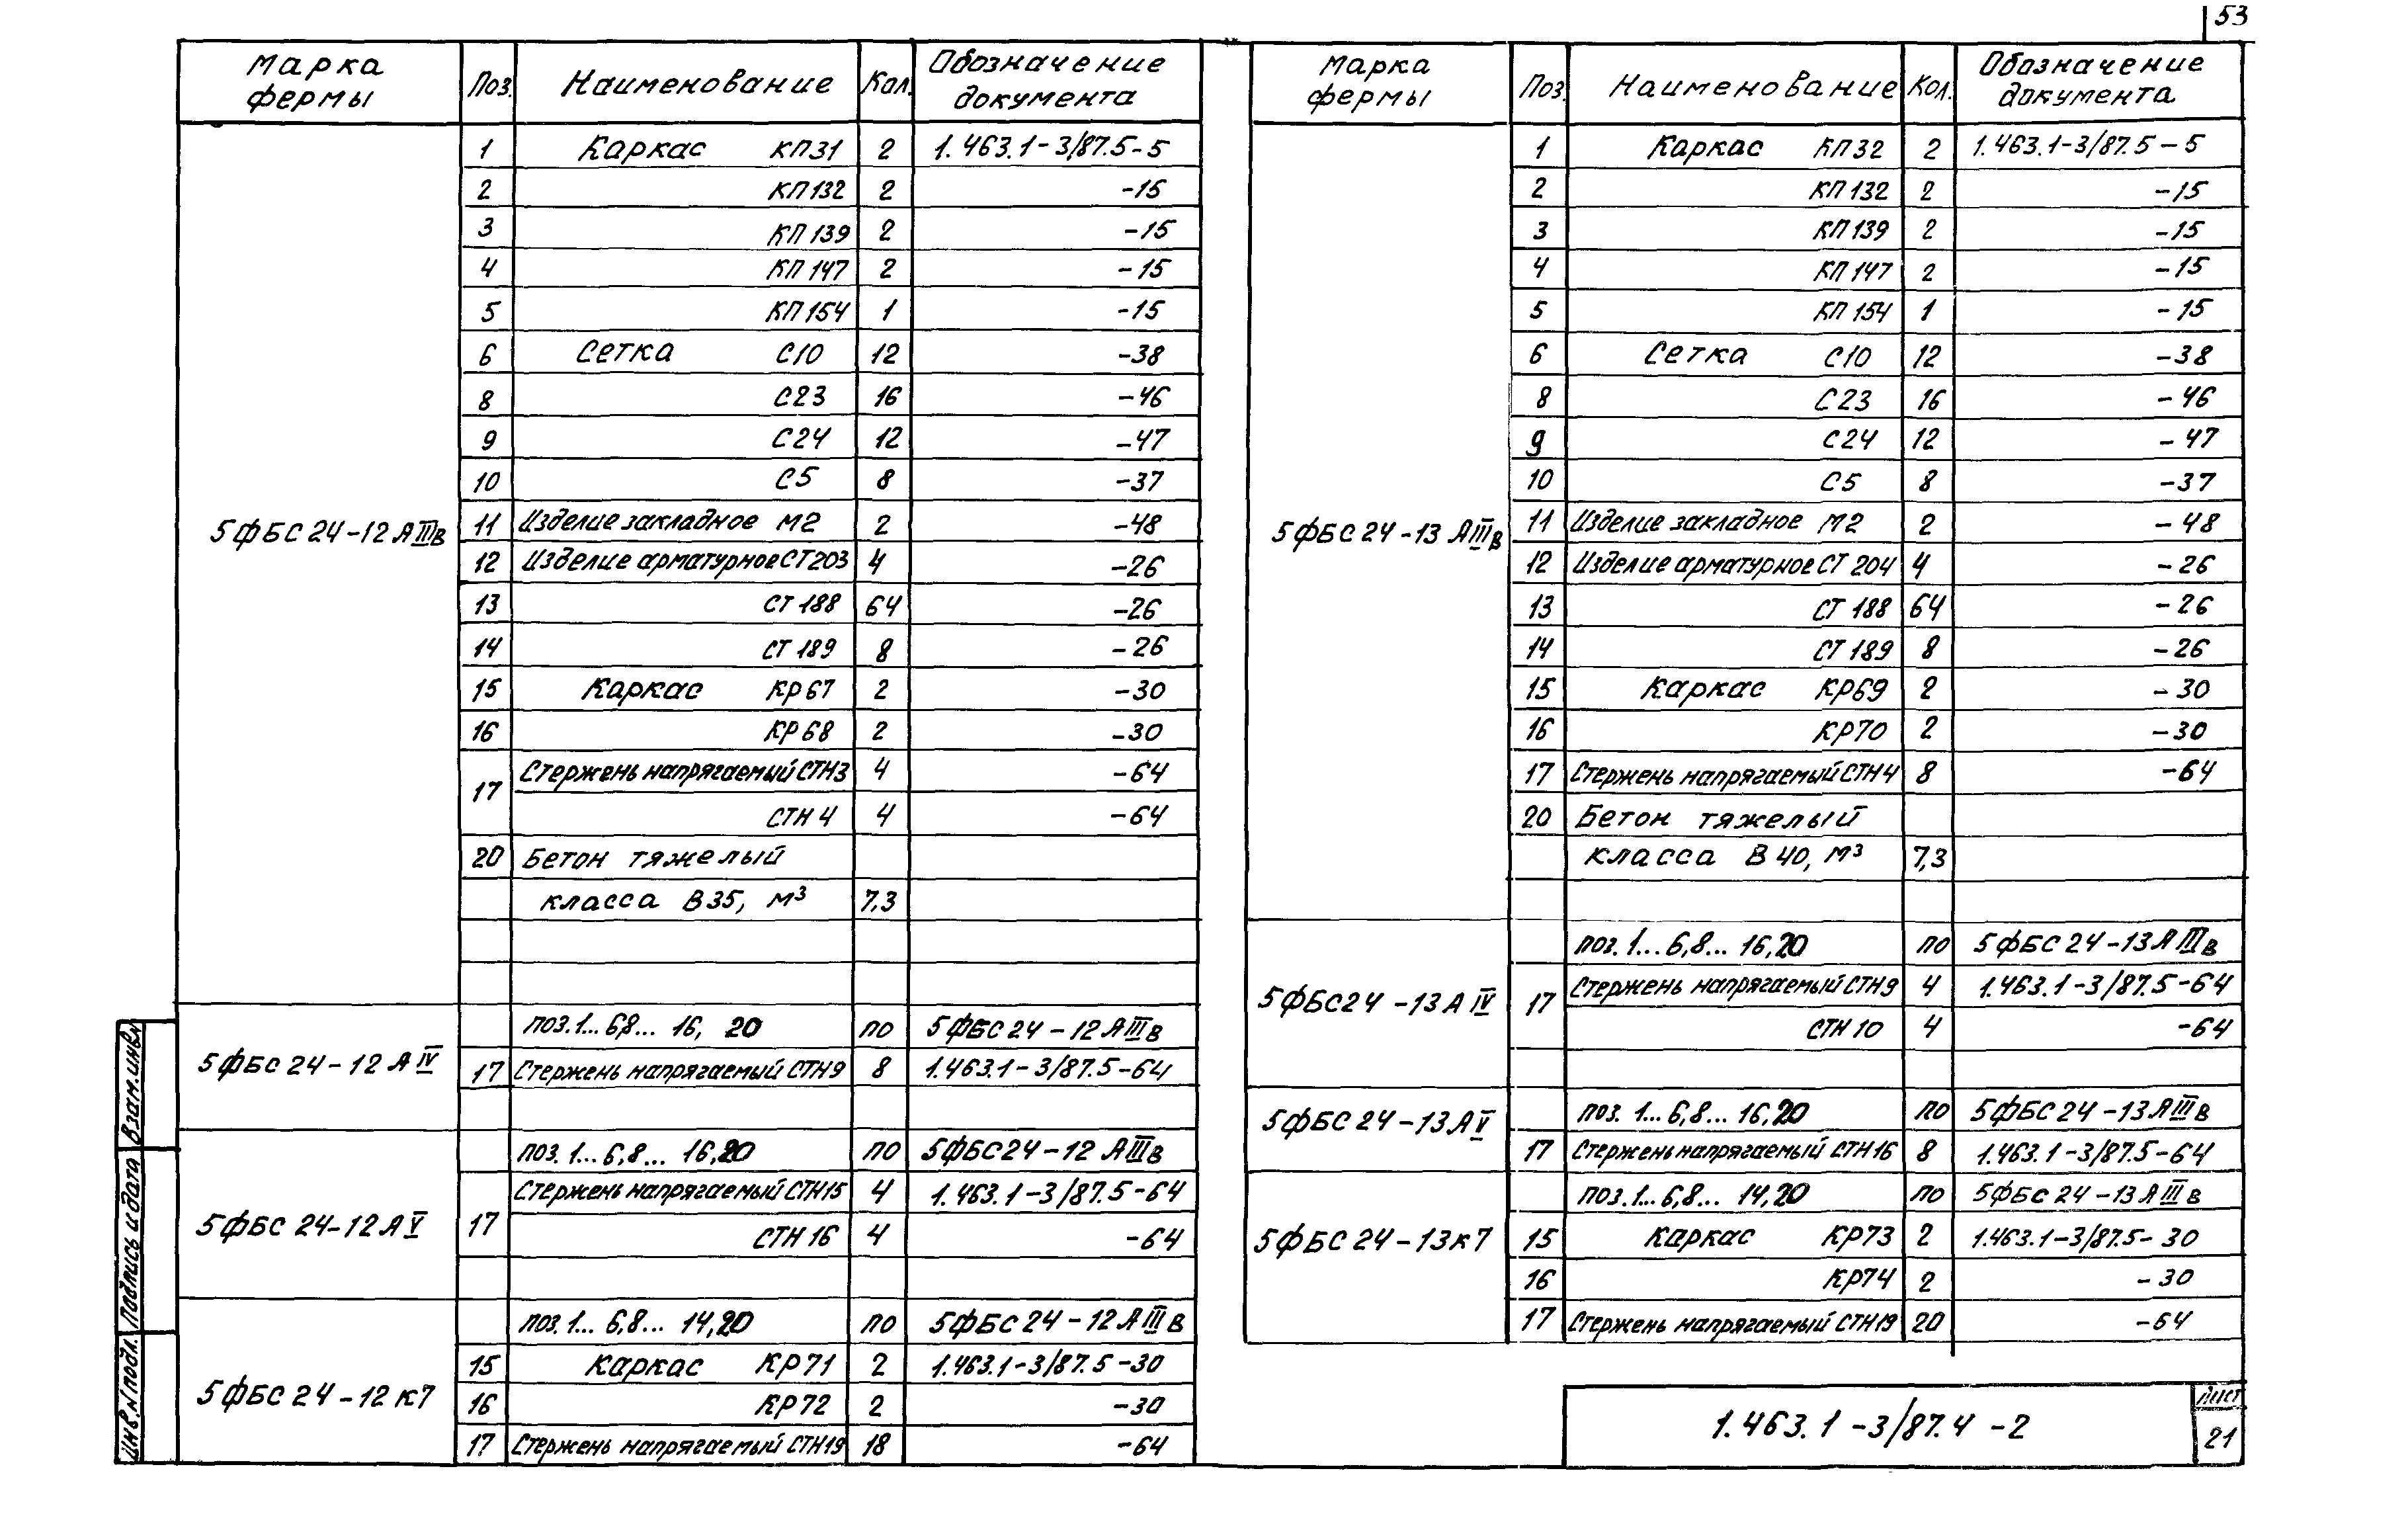 53
Марка фермы Поз. Наименование Кол. Обозначение документа
1 Каркас КП31 2 1.463.1-3/87.5-5
2 КП132 2 -15
3 КП139 2 -15
4 КП147 2 -15
5 КП154 1 -15
6 Сетка С10 12 -38
8 С23 16 -46
9 С24 12 -47
10 С5 8 -37
5ФБС24-12АIIIв 11 Изделие закладное М2 2 -48
12 Изделие арматурное СТ203 4 -26
13 СТ188 64 -26
14 СТ189 8 -26
15 Каркас КР67 2 -30
16 КР68 2 -30
17 Стержень напрягаемый СТН3 4 -64
СТН4 4 -64
20 Бетон тяжелый
класса В35, м³ 7,3
поз.1...6,8... 16, 20 по 5ФБС24-12АIIIв
5ФБС24-12АIV 17 Стержень напрягаемый СТН9 8 1.463.1-3/87.5-64
поз.1...6,8... 16,20 по 5ФБС24-12АIIIв
Стержень напрягаемый СТН15 4 1.463.1-3/87.5-64
5ФБС24-12АV 17 СТН16 4 -64
поз.1...6,8... 14,20 по 5ФБС24-12АIIIв
15 Каркас КР71 2 1.463.1-3/87.5-30
5ФБС24-12К7 16 КР72 2 -30
17 Стержень напрягаемый СТН19 18 -64
Марка фермы Поз. Наименование Кол. Обозначение документа
1 Каркас КП32 2 1.463.1-3/87.5-5
2 КП132 2 -15
3 КП139 2 -15
4 КП147 2 -15
5 КП154 1 -15
6 Сетка С10 12 -38
8 С23 16 -46
9 С24 12 -47
10 С5 8 -37
5ФБС24-13АIIIв 11 Изделие закладное М2 2 -48
12 Изделие арматурное СТ204 4 -26
13 СТ188 64 -26
14 СТ189 8 -26
15 Каркас КР69 2 -30
16 КР70 2 -30
17 Стержень напрягаемый СТН4 8 -64
20 Бетон тяжелый
класса В40, м³ 7,3
поз.1...6,8... 16,20 по 5ФБС24-13АIIIв
5ФБС24-13АIV 17 Стержень напрягаемый СТН9 4 1.463.1-3/87.5-64
СТН10 4 -64
поз.1...6,8... 16,20 по 5ФБС24-13АIIIв
5ФБС24-13АV 17 Стержень напрягаемый СТН16 8 1.463.1-3/87.5-64
поз.1...6,8... 14,20 по 5ФБС24-13АIIIв
5ФБС24-13К7 15 Каркас КР73 2 1.463.1-3/87.5-30
16 КР74 2 -30
17 Стержень напрягаемый СТН19 20 -64
1.463.1-3/87.4-2
Лист
21
Взам.инв.№
Подпись и дата
Инв.№подл.